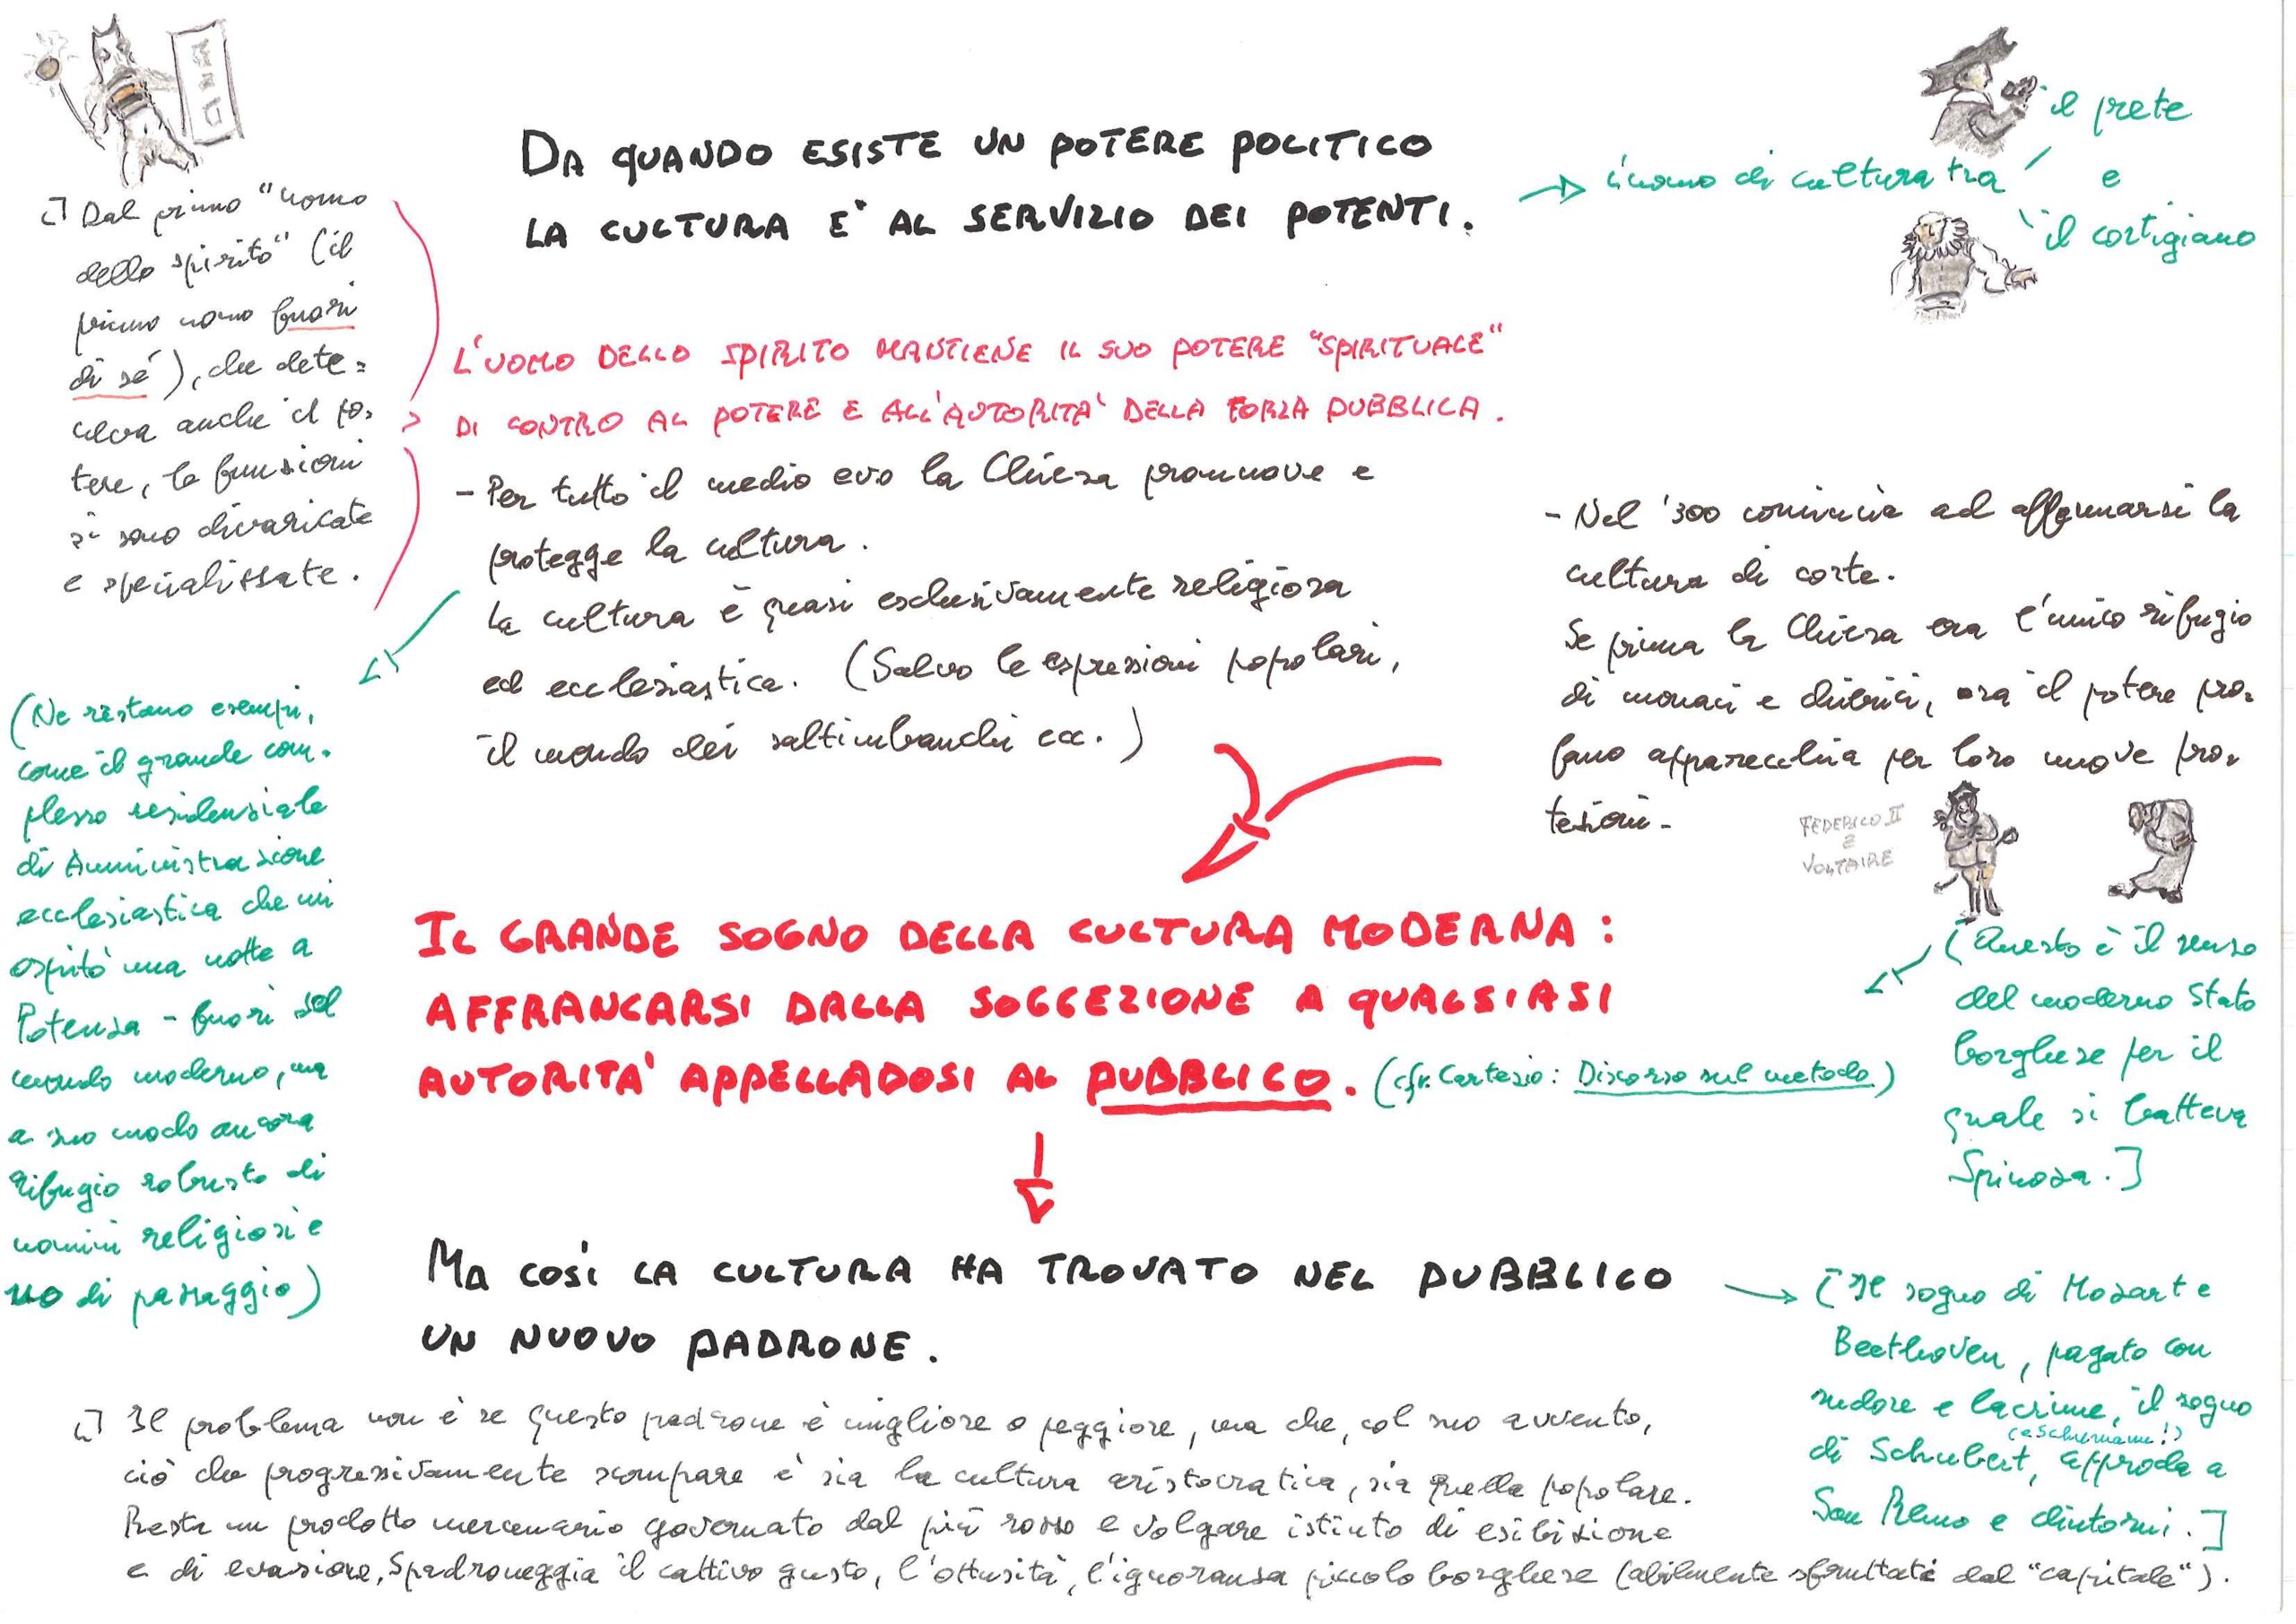 DA QUANDO ESISTE UN POTERE POLITICO
LA CULTURA E' AL SERVIZIO DEI POTENTI.
l'uomo di cultura tra
il prete
e
il cortigiano
[] Dal primo "uomo
dello spirito" (il
primo uomo fuori
di sé), che dete=
neva anche il po=
tere, le funzioni
si sono divaricate
e specializzate.
L'UOMO DELLO SPIRITO MANTIENE IL SUO POTERE "SPIRITUALE"
DI CONTRO AL POTERE E ALL'AUTORITA' DELLA FORZA PUBBLICA.
- Per tutto il medio evo la Chiesa promuove e
protegge la cultura.
La cultura è quasi esclusivamente religiosa
ed ecclesiastica. (Salvo le espressioni popolari,
il mondo dei saltimbanchi ecc.)
- Nel '300 comincia ad affermarsi la
cultura di corte.
Se prima la Chiesa era l'unico rifugio
di monaci e chierici, ora il potere pro=
fano apparecchia per loro nuove pro=
tezioni-
FEDERICO II
E
VOLTAIRE
(Ne restano esempi,
come il grande com=
plesso residenziale
di Amministrazione
ecclesiastica che mi
ospitò una notte a
Potenza - fuori dal
mondo moderno, ma
a suo modo ancora
rifugio robusto di
uomini religiosi e
no di passaggio)
IL GRANDE SOGNO DELLA CULTURA MODERNA:
AFFRANCARSI DALLA SOGGEZIONE A QUALSIASI
AUTORITA' APPELLADOSI AL PUBBLICO. (cfr. Cartesio: Discorso sul metodo)
[Questo è il senso
del moderno Stato
borghese per il
quale si batteva
Spinoza.]
MA COSÌ LA CULTURA HA TROVATO NEL PUBBLICO
UN NUOVO PADRONE.
[Il sogno di Mozart e
Beethoven, pagato con
sudore e lacrime, il sogno
(e Schumann!)
di Schubert, approda a
San Remo e dintorni.]
[] Il problema non è se questo padrone è migliore o peggiore, ma che, col suo avvento,
ciò che progressivamente scompare è sia la cultura aristocratica, sia quella popolare.
Resta un prodotto mercenario governato dal più rozzo e volgare istinto di esibizione
e di evasione. Spadroneggia il cattivo gusto, l'ottusità, l'ignoranza piccolo borghese (abilmente sfruttate dal "capitale").